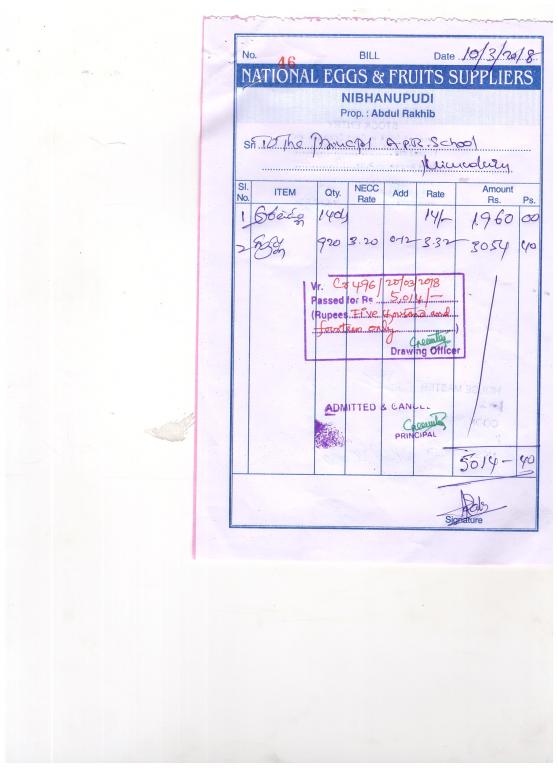 No. 46 BILL Date 10/3/2018
NATIONAL EGGS & FRUITS SUPPLIERS
NIBHANUPUDI
Prop. : Abdul Rakhib
Sri To The Principal A.P.R. School
Sl. No. ITEM Qty. NECC Rate Add Rate Amount Rs. Ps.
1 140 14/- 1960 00
2 920 3.20 0-12 3.32 3054 40
Vr. 496/20/03/2018
Passed for Rs 5,014/-
(Rupees Five thousand and
fourteen only)
Drawing Officer
ADMITTED & CANCEL
PRINCIPAL
5014 - 40
Signature